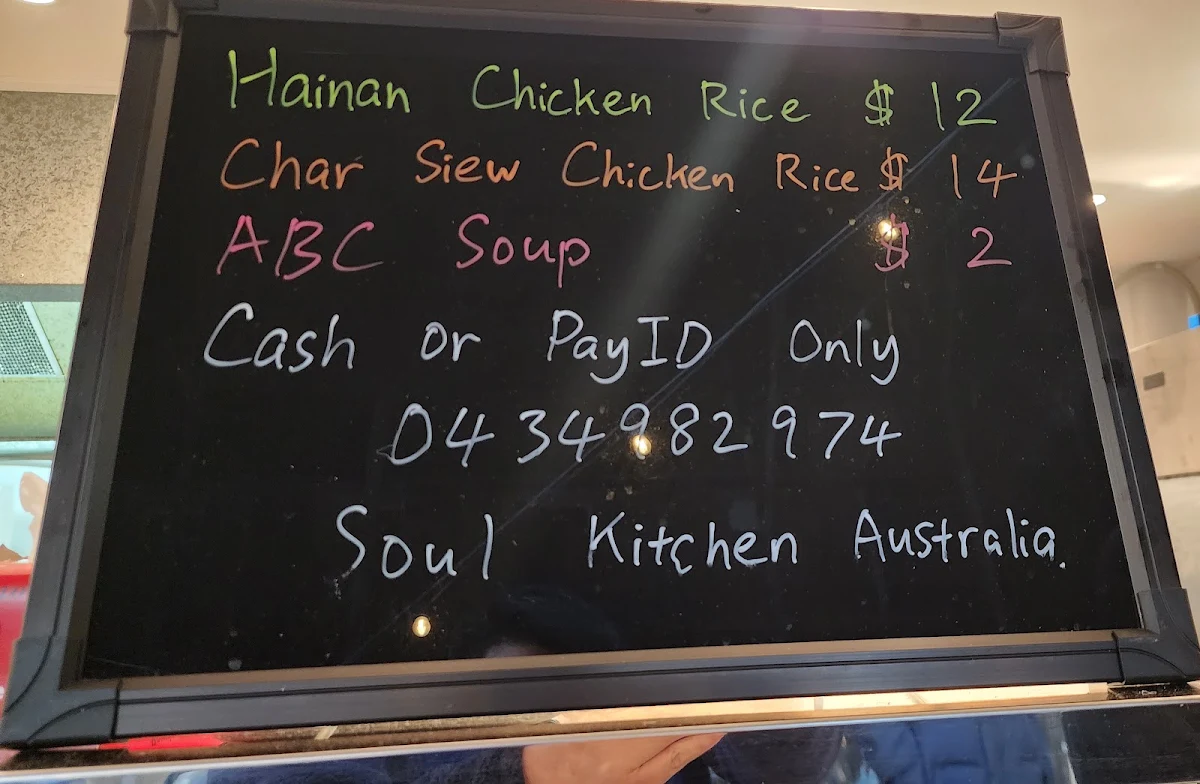 Hainan Chicken Rice $ 12
Char Siew Chicken Rice $ 14
ABC Soup $ 2
Cash or PayID Only
0434982974
Soul Kitchen Australia.